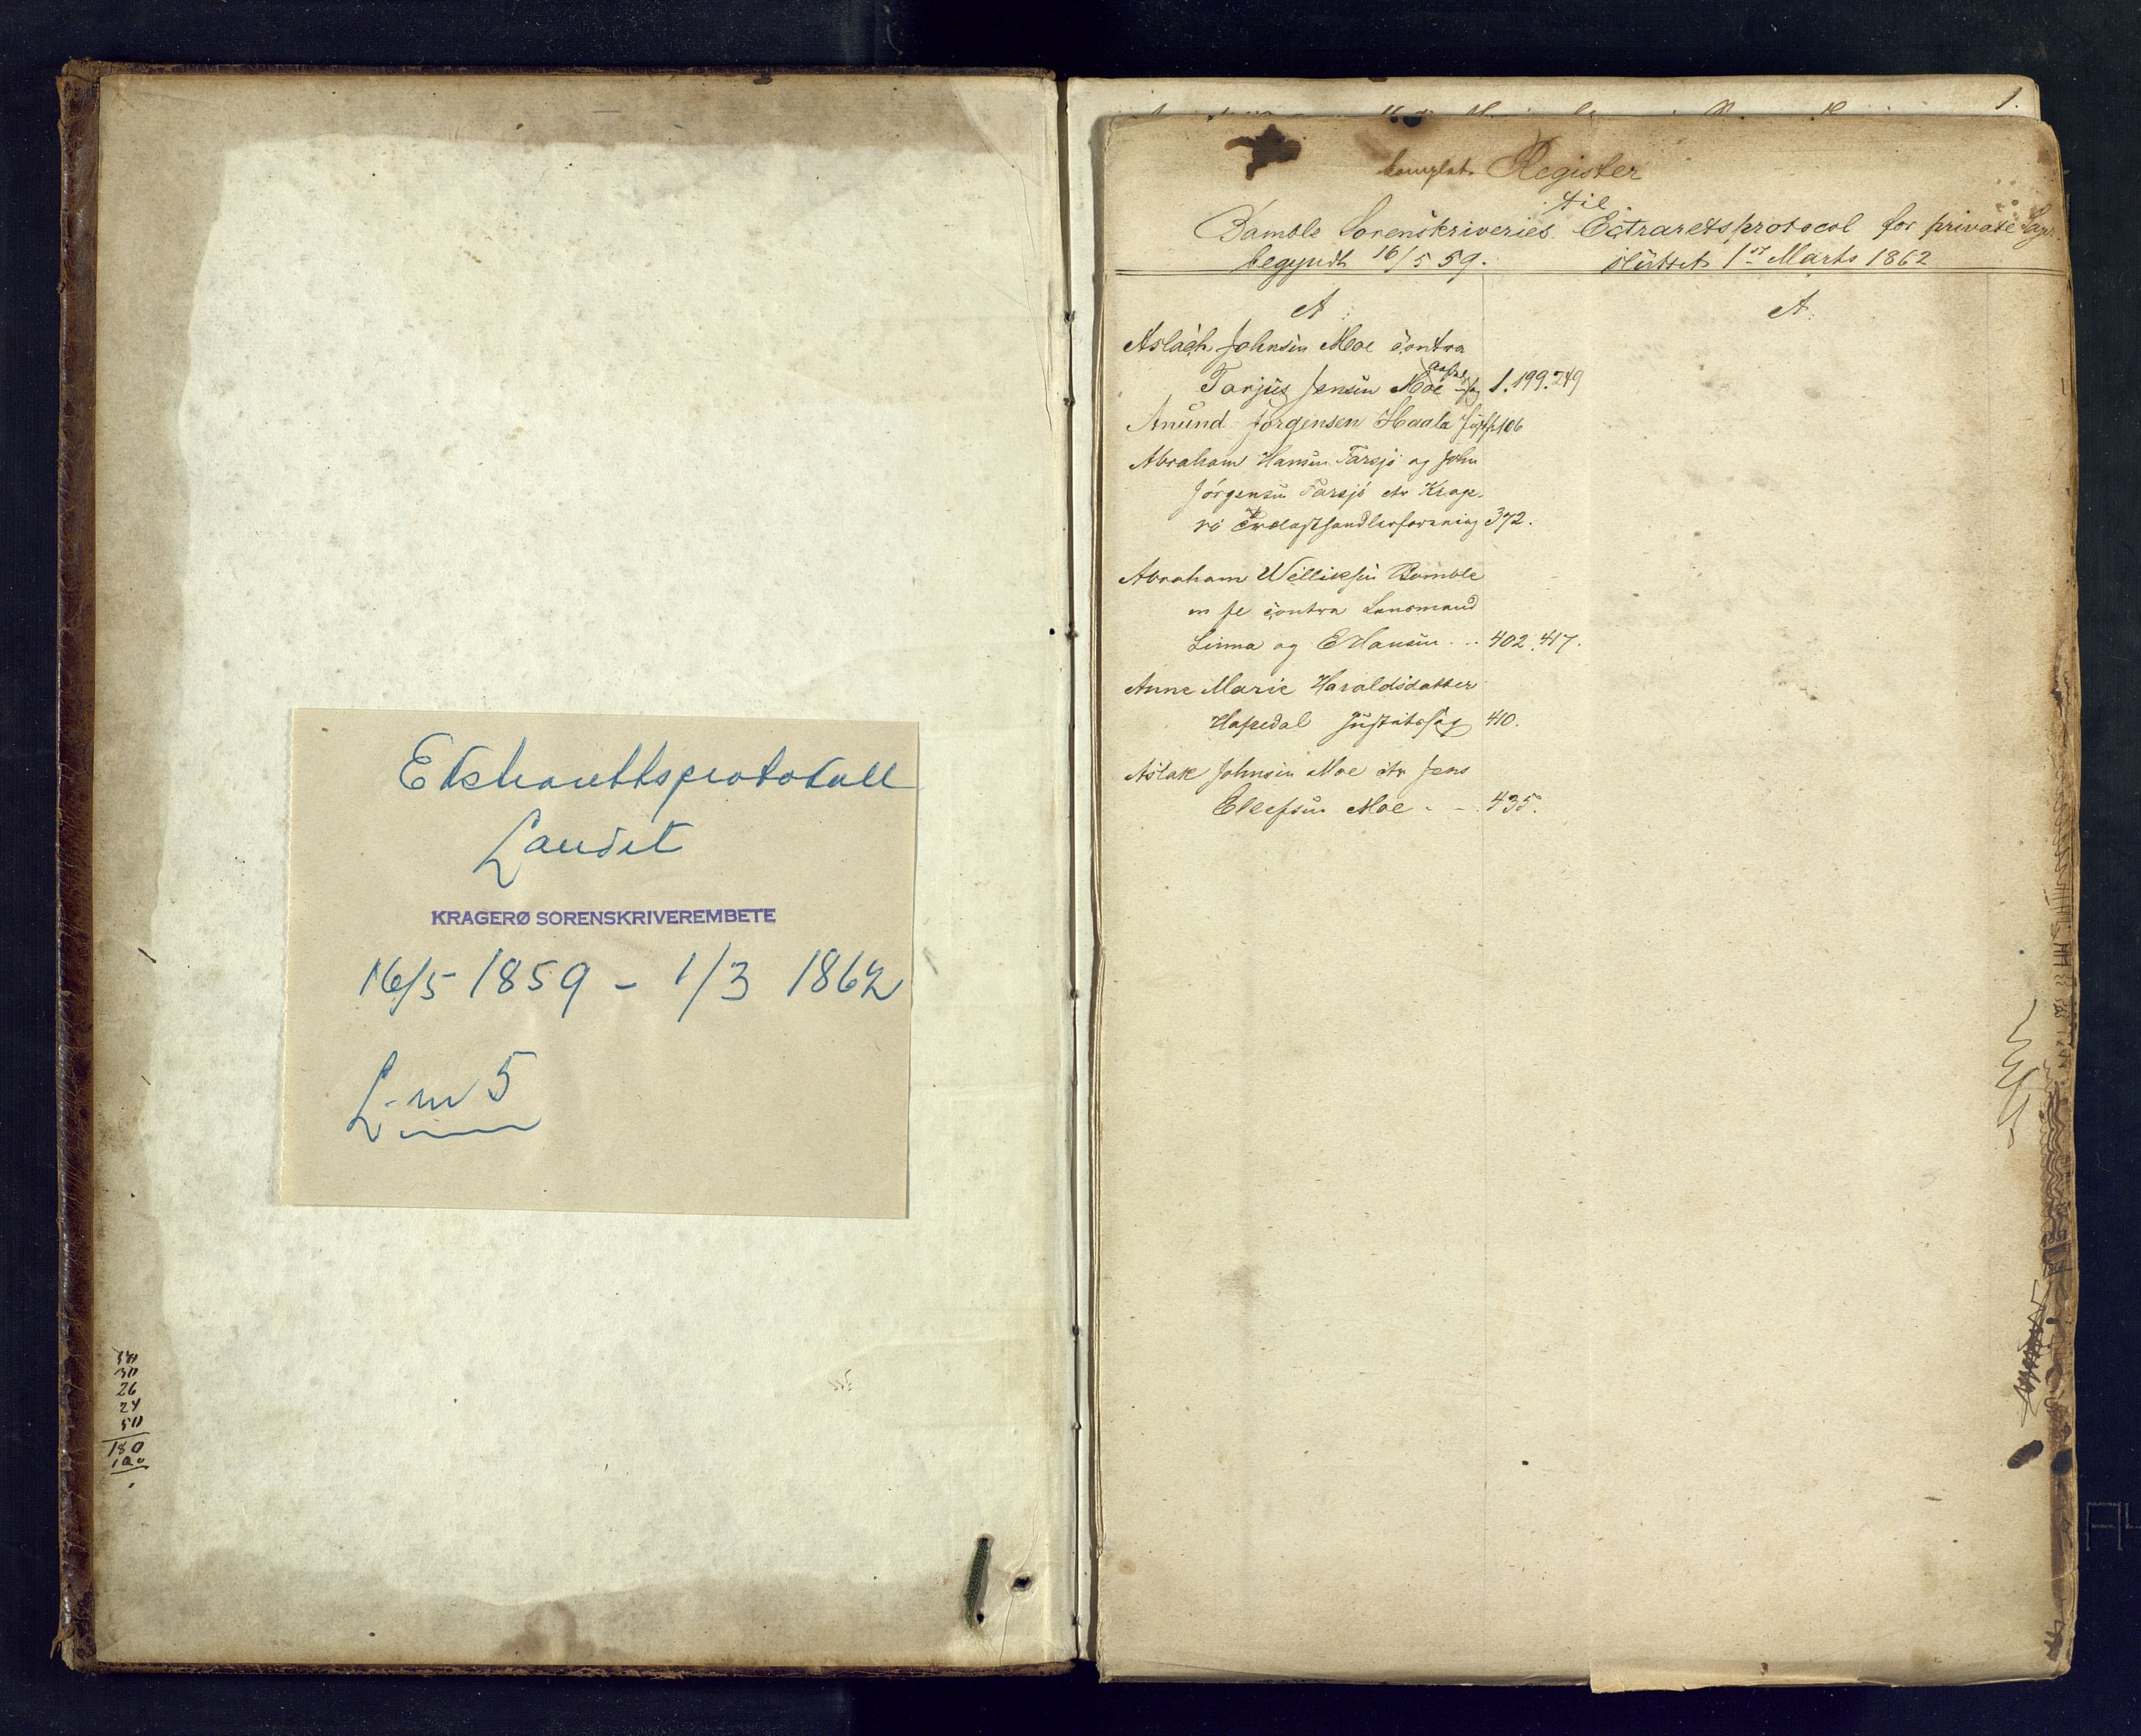 Ekstrarettsprotokoll
Landet
KRAGERØ SORENSKRIVEREMBETE
16/5 1859 - 1/3 1862
L. nr 5
30
26
24
50
180
1.
komplet Register
til
Bamble Sorenskriveries Extraretsprotocol for private Sager
begyndt 16/5 59. sluttet 1ste Marts 1862
A. A.
Aslach Johnsen Moe contra
Tarjus Jensen Moe 1. 199. 249
Anund Jørgensen Haala 106
Abraham Hansen Farsjø og John
Jørgensen Farsjø ctr Krage-
rø Trælasthandlerforening 372.
Abraham Willicksen Bamble
contra Lensmand
Linna og E Hansen 402. 417.
Anne Marie Haraldsdatter
Hafsedal Justitssag 410.
Aslak Johnsen Moe ctr Jens
Ellefsen Moe - - 435.